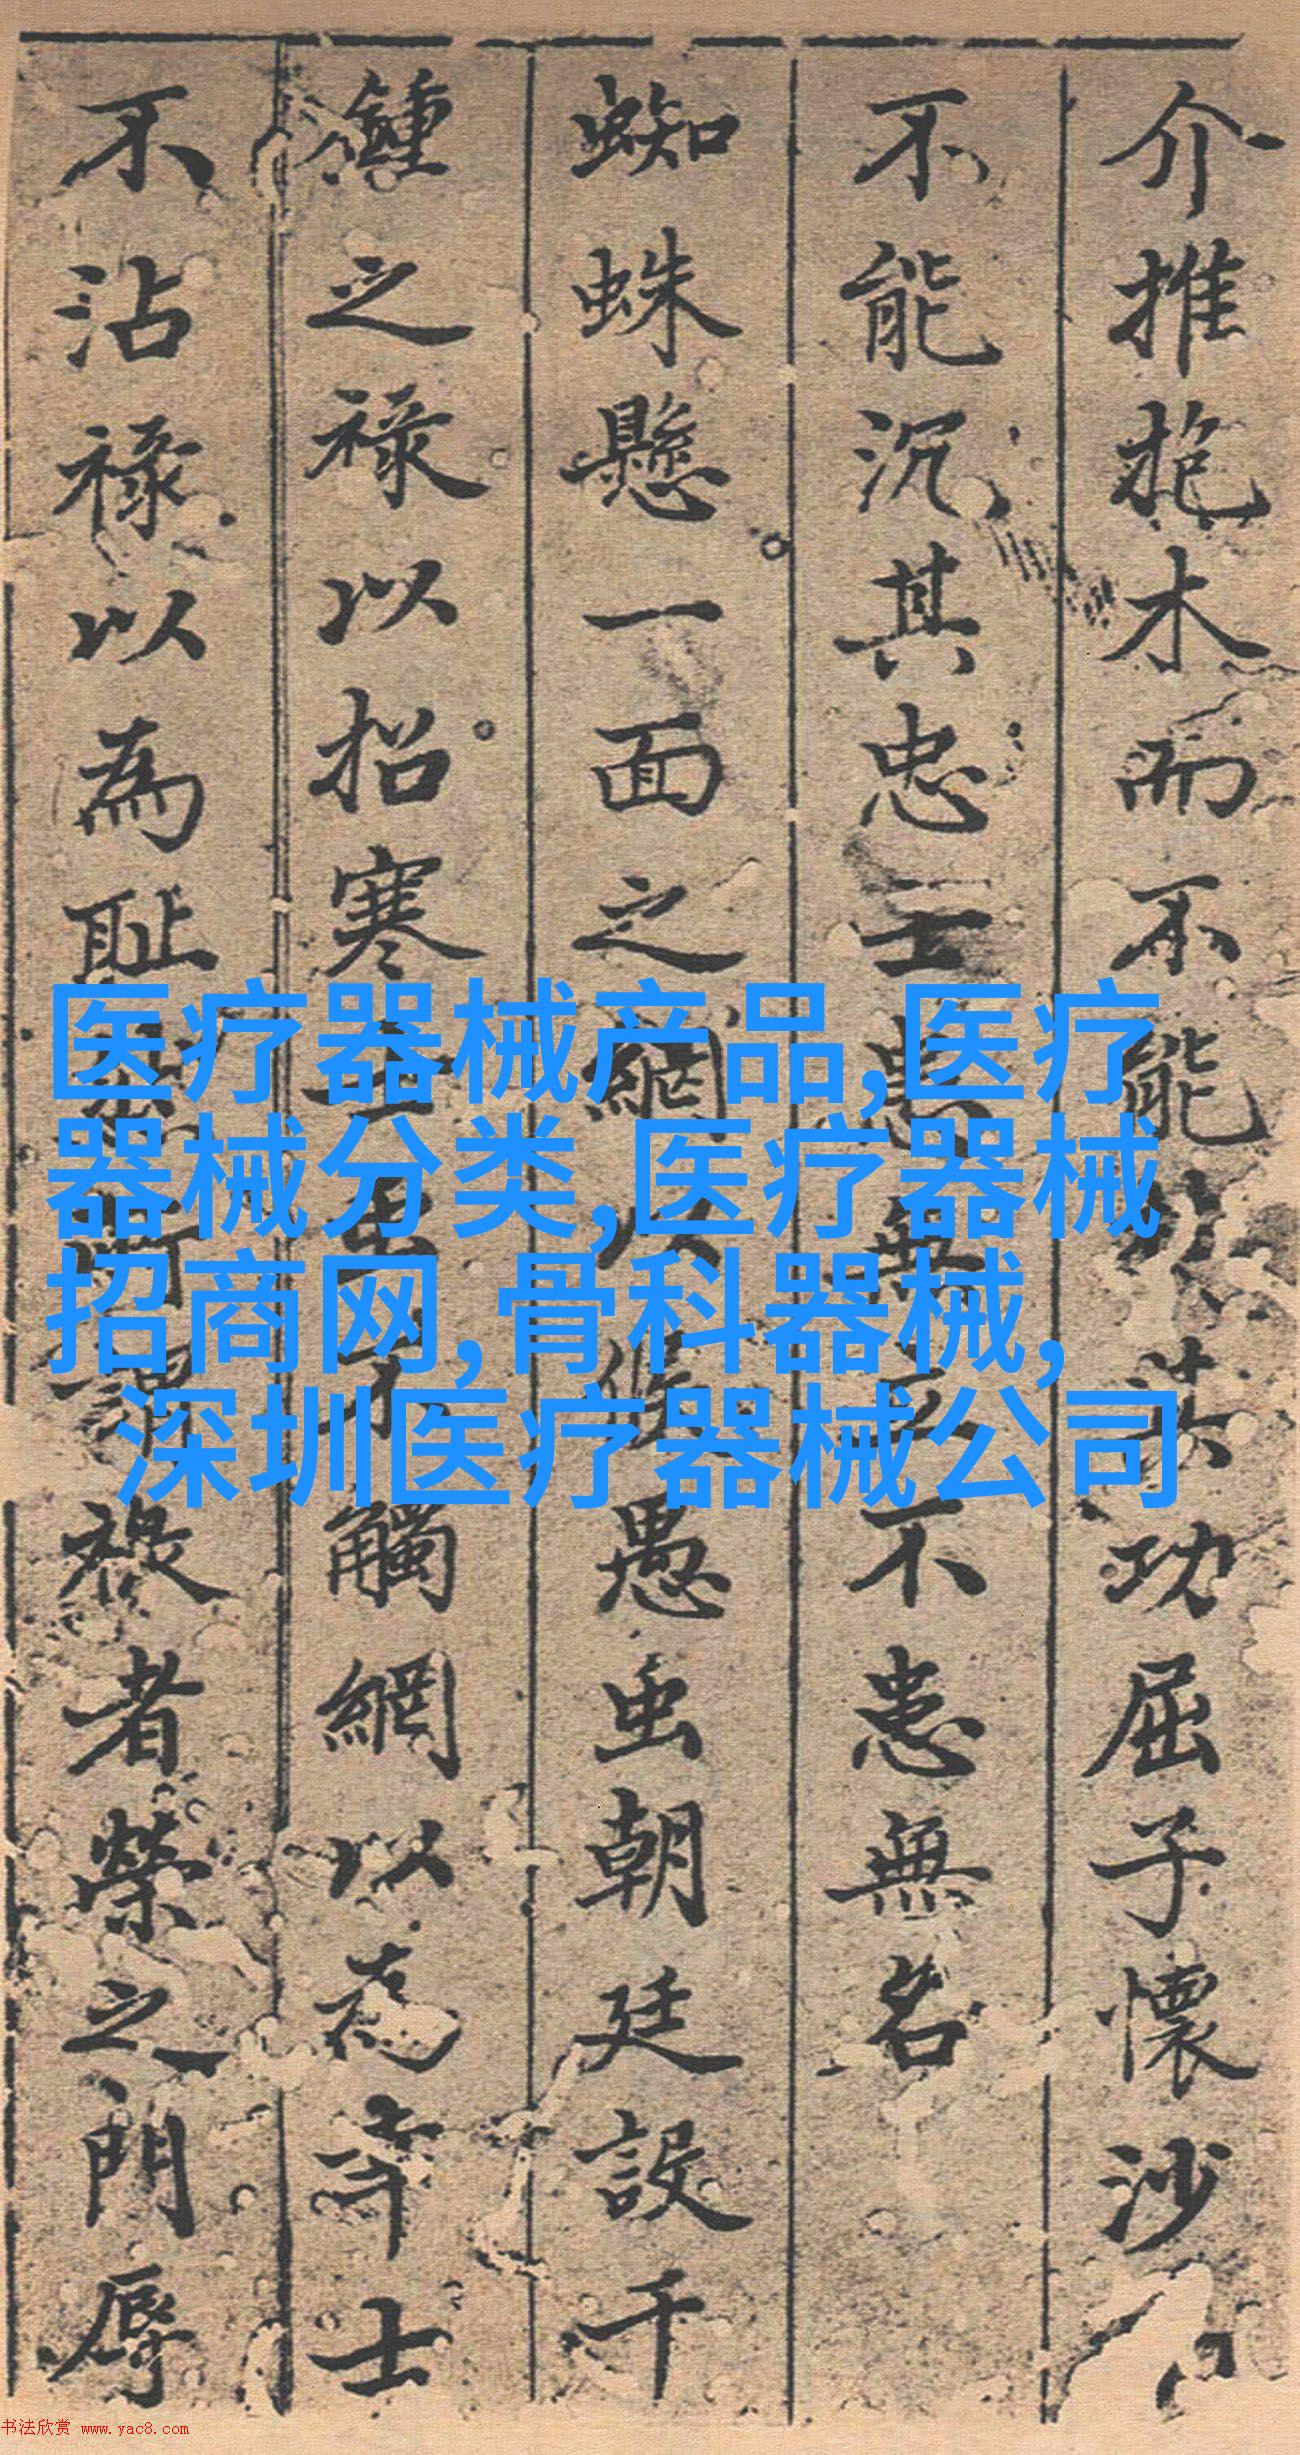 介推抱木而不能
功屈子懷沙
不能沉其忠士患無
不患無名
蜘蛛懸一面之網以
愚虫朝廷設千
鍾之祿以招寒
觸網以為幸士
不沾祿以為恥
祿者榮之門辱
医疗器械产品,医疗
器械分类,医疗器械
招商网,骨科器械,
深圳医疗器械公司
书法欣赏 www.yac8.com